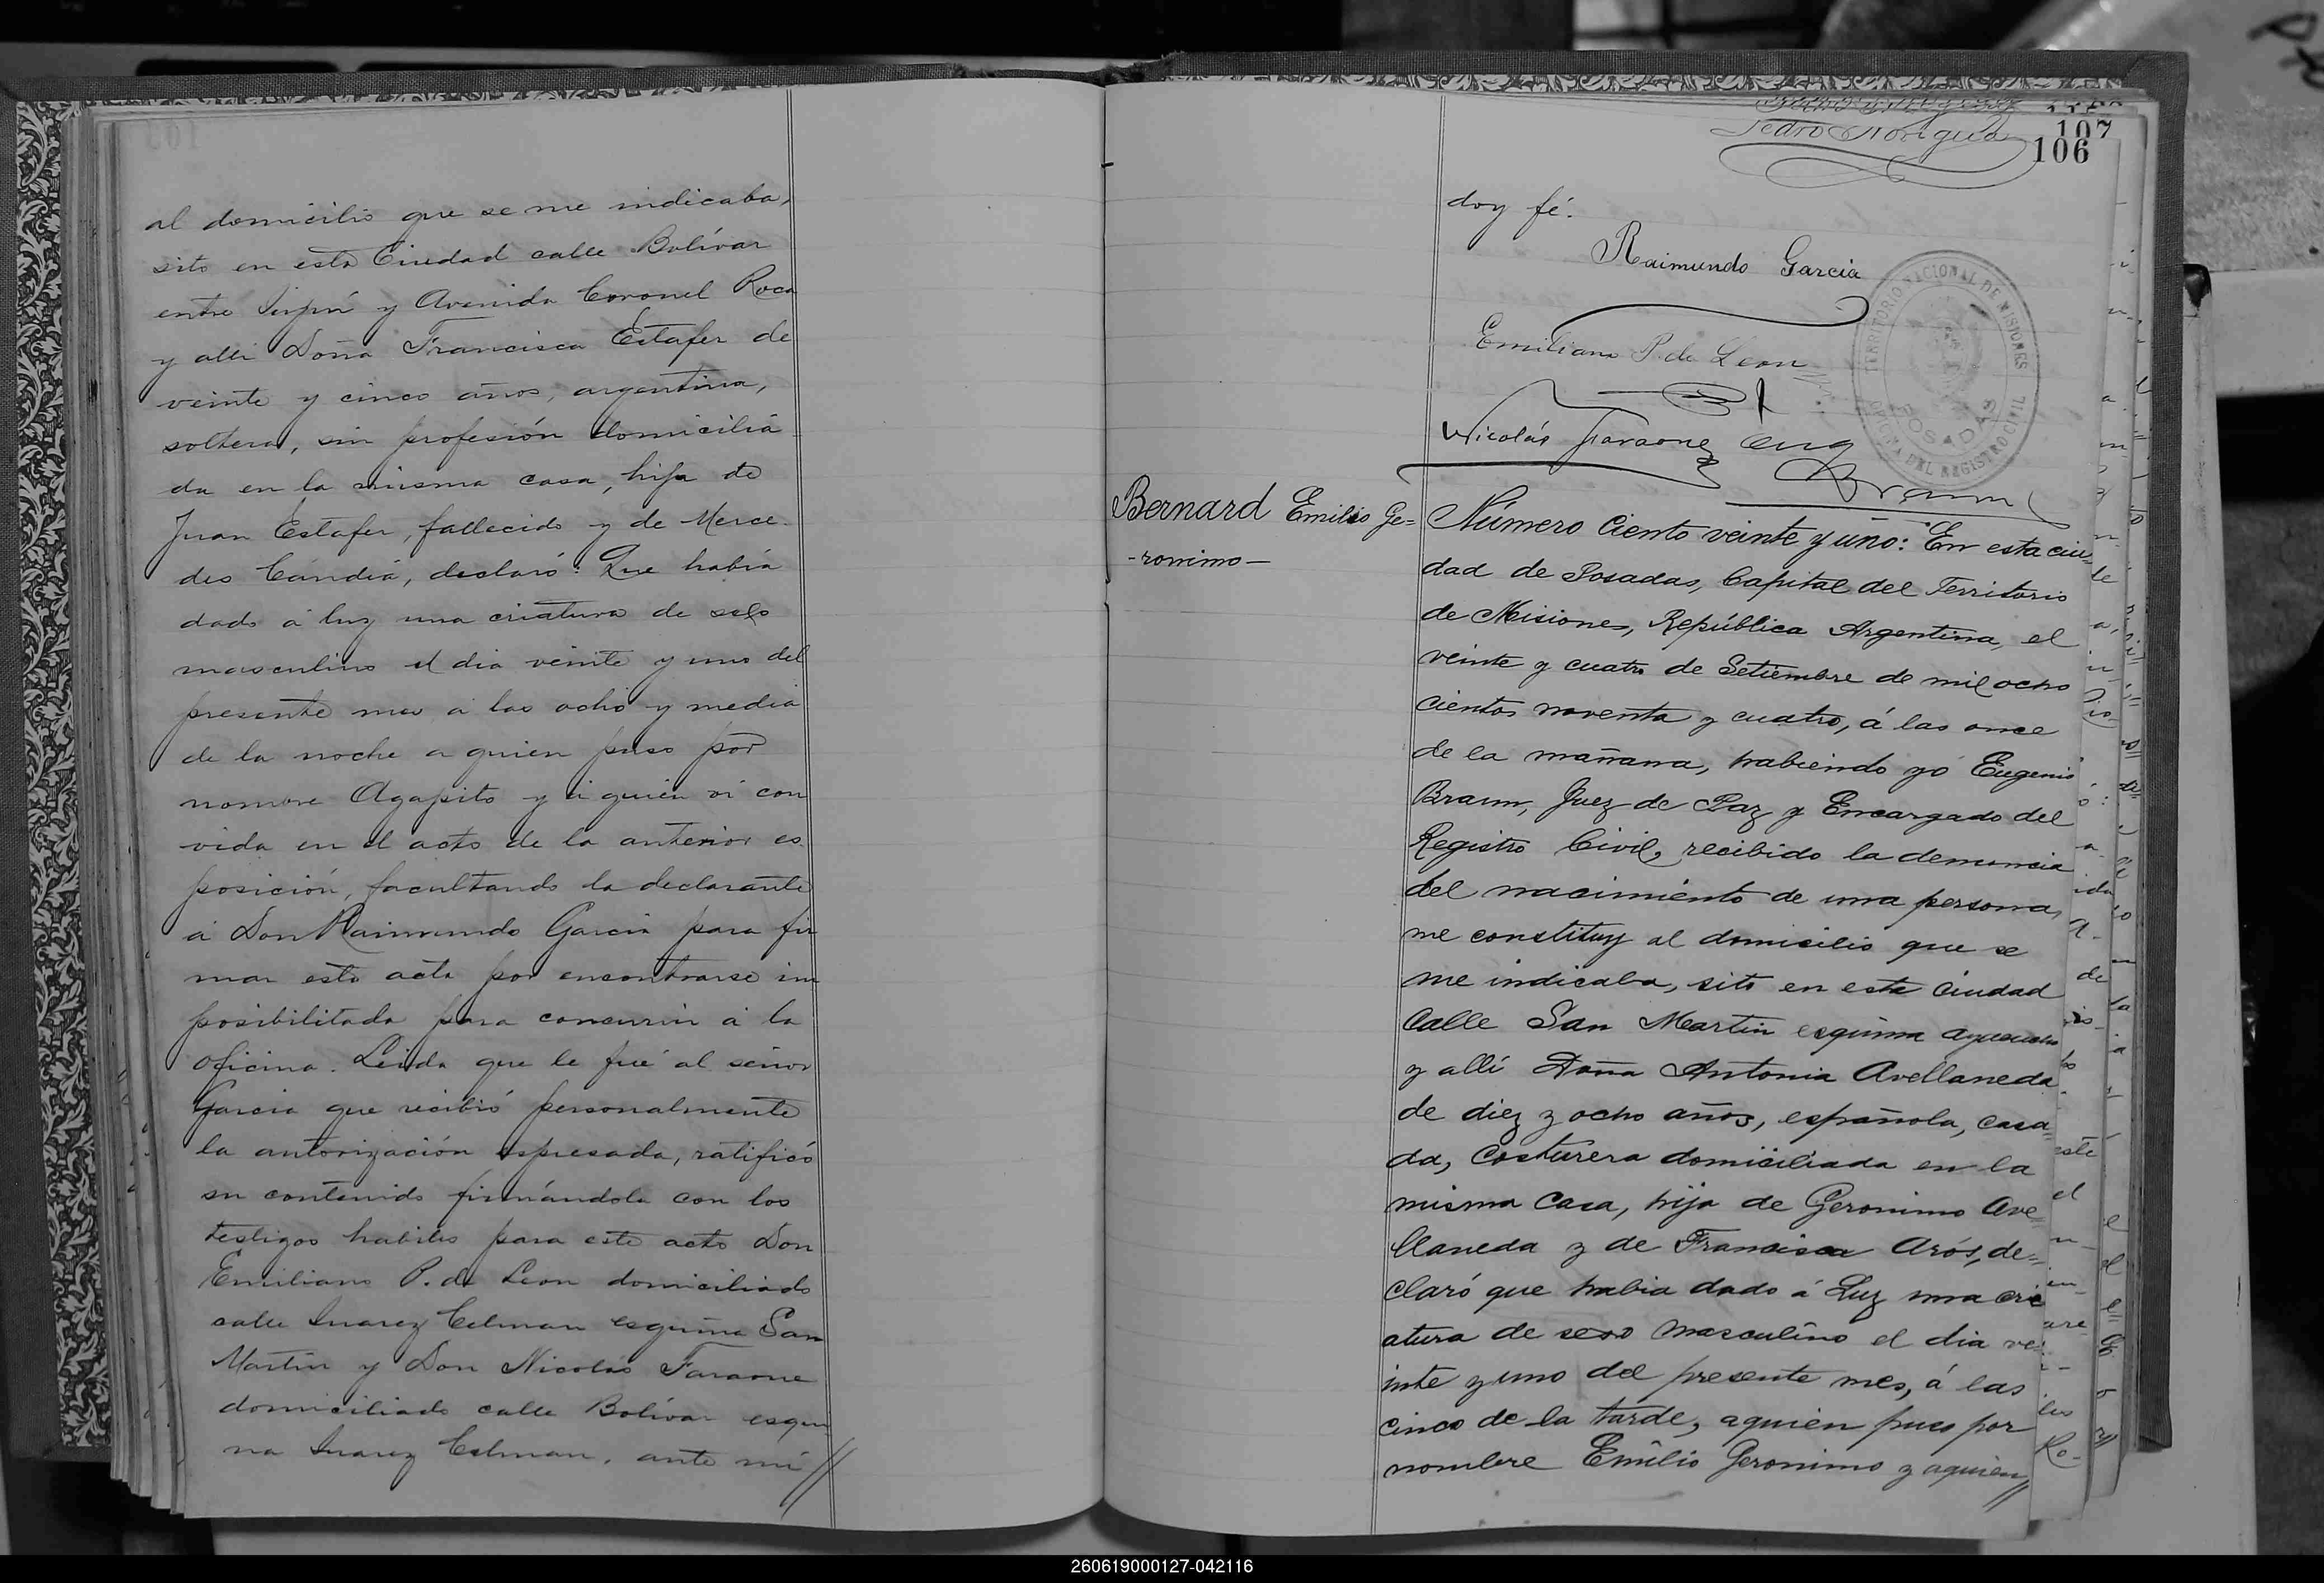 al domicilio que se me indicaba,
sito en esta Ciudad calle Bolívar
entre y Avenida Coronel Roca
y alli Doña Francisca Estafer de
veinte y cinco años, argentina,
soltera, sin profesión domicilia
da en la misma casa, hija de
Juan Estafer, fallecido y de Merce-
des Candia, declaró: Que había
dado á luz una criatura de sexo
masculino el dia veinte y uno del
presente mes á las ocho y media
de la noche a quien puso por
nombre Agapito y á quien vi con
vida en el acto de la anterior es-
posición, facultando la declarante
á Don Raimundo Garcia para fir
mar esta acta por encontrarse im
posibilitada para concurrir á la
oficina. Leida que le fué al señor
Garcia que recibió personalmente
la autorización espresada, ratificó
su contenido firmándola con los
testigos habiles para este acto Don
Emiliano P. de Leon domiciliado
calle Juarez Celman esquina San
Martin y Don Nicolás Faraone
domiciliado calle Bolívar esqui
na Juarez Celman, ante mi //
107
106
doy fé.
Raimundo Garcia
Emiliano P. de Leon
Nicolás Faraone Eug
Braun
TERRITORIO NACIONAL DE MISIONES
POSADAS
OFICINA DEL REGISTRO CIVIL
Bernard Emilio Ge=
-ronimo-
Número Ciento veinte y uno: En esta ciu-
dad de Posadas, Capital del Territorio
de Misiones, República Argentina, el
veinte y cuatro de Setiembre de mil ocho
cientos noventa y cuatro, á las once
de la mañana, habiendo yo Eugenio
Braun, Juez de Paz y Encargado del
Registro Civil, recibido la denuncia
del nacimiento de una persona,
me constituy al domicilio que se
me indicaba, sito en esta Ciudad
Calle San Martin esquina ayacucho
y allí Doña Antonia Avellaneda
de diez y ocho años, española, casa=
da, Costurera domiciliada en la
misma Casa, hija de Geronimo Ave=
llaneda y de Francisca Arós, de=
claró que habia dado á Luz una cri
atura de sexo masculino el dia ve-
inte y uno del presente mes, á las
cinco de la tarde, aquien puso por
nombre Emilio Geronimo y aquien //
260619000127-042116